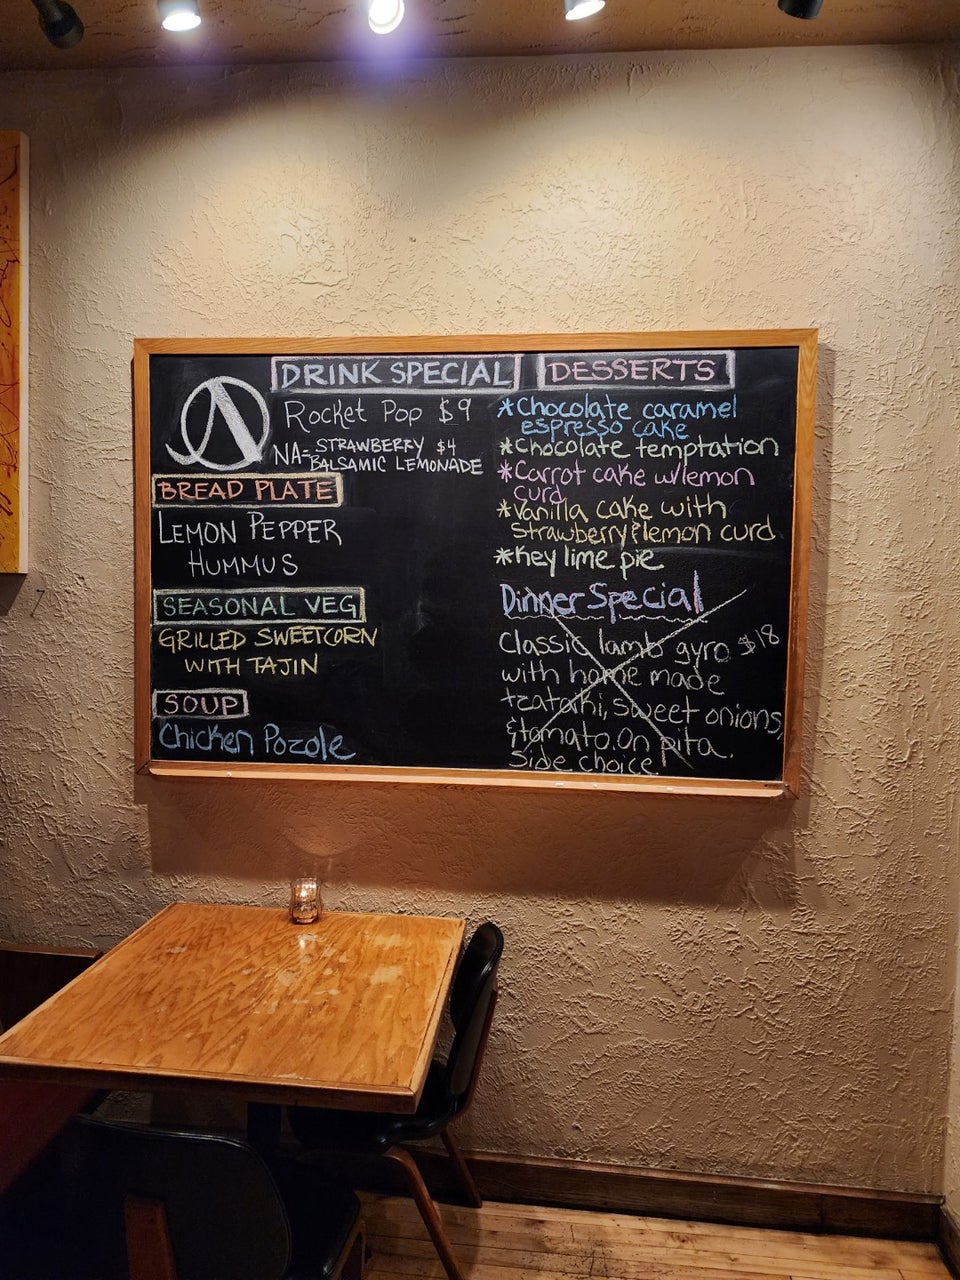 DRINK SPECIAL
Rocket Pop $9
NA- STRAWBERRY $4
BALSAMIC LEMONADE
BREAD PLATE
LEMON PEPPER
HUMMUS
SEASONAL VEG
GRILLED SWEETCORN
WITH TAJIN
SOUP
Chicken Pozole
DESSERTS
*Chocolate caramel
espresso cake
*Chocolate temptation
*Carrot cake w/lemon
curd
*Vanilla cake with
Strawberry & lemon curd
*Key lime pie
Dinner Special
Classic lamb gyro $18
with home made
tzatziki, sweet onions,
& tomato. On pita.
Side choice.